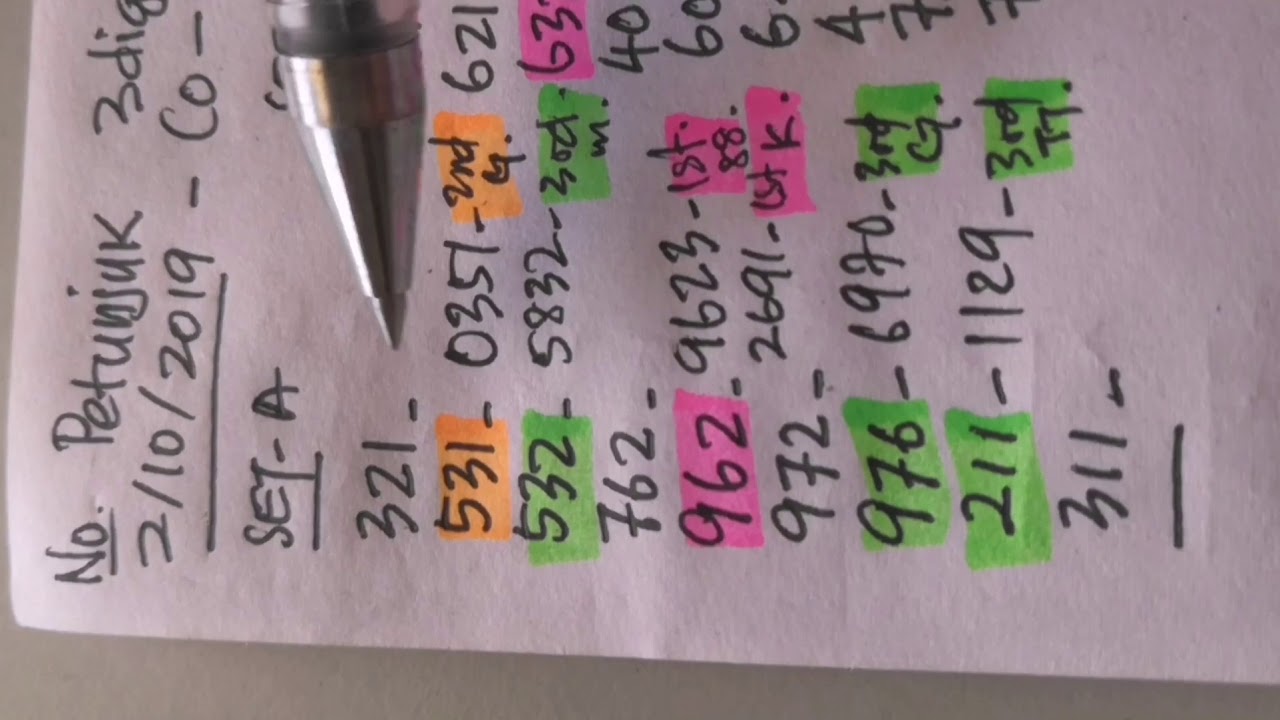 No. Petunjuk 3dig
2/10/2019 - Co -
SET-A
321 -
531 - 0351 - 2nd 621
G.
532 - 5832 - 3rd. 63
m.
762 - 40
962 - 9623 - 1st. 60
88.
972 - 2691 - 1st K. 6
976 - 6970 - 3rd 4
G. 7
211 - 1129 - 3rd 7
TT.
311 -